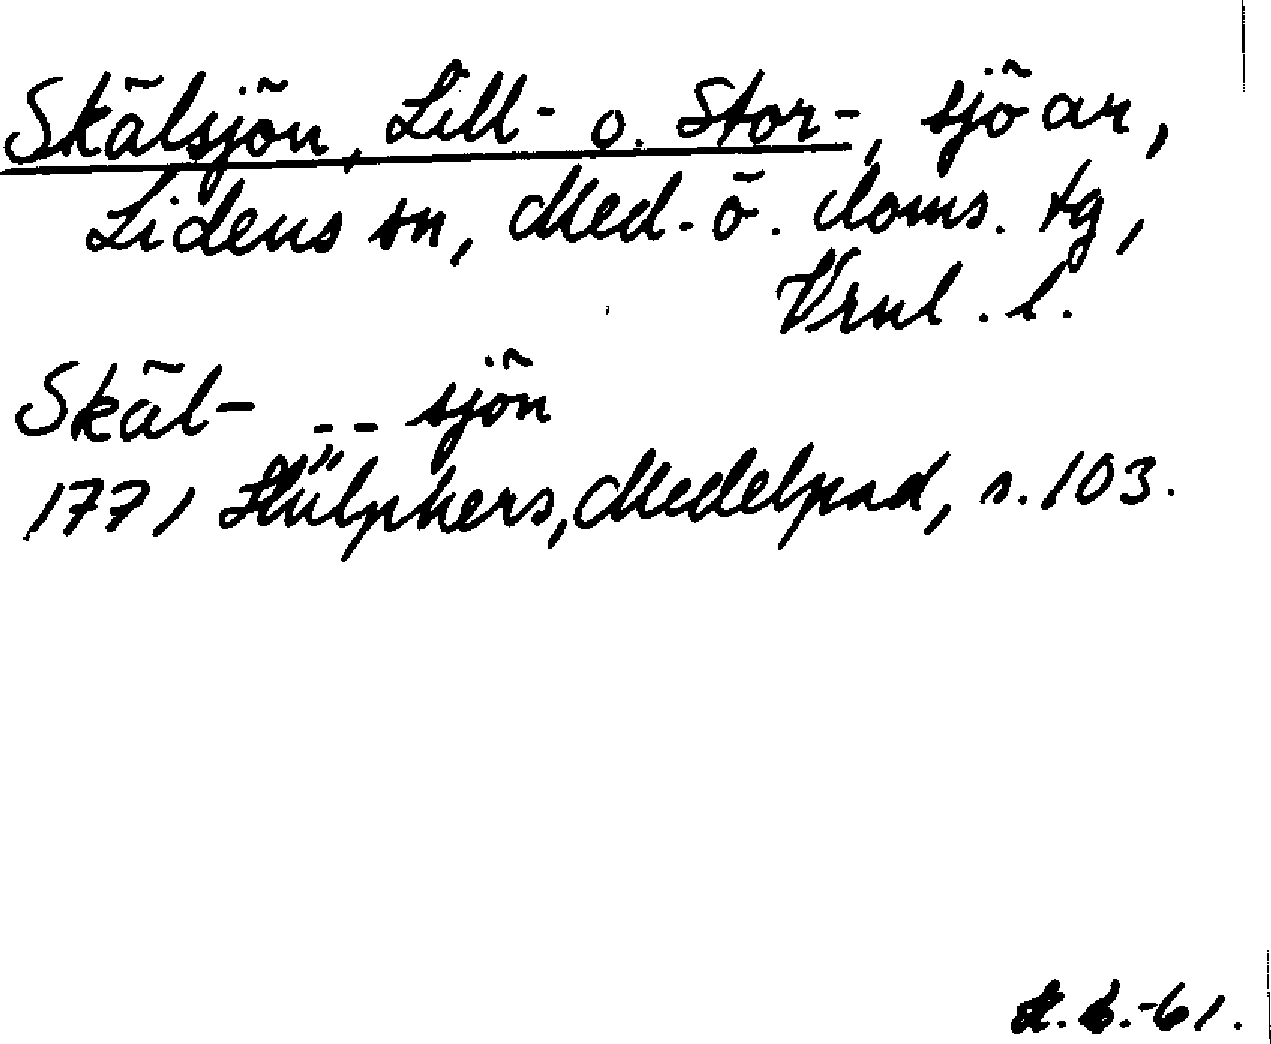 Skälsjön, Lill- o. Stor-, sjöar,
Lidens sn, Med. ö. doms. tg,
Vrnl. l.
Skäl- -- sjön
1771 Hülphers, Medelpad, s. 103.
-61.